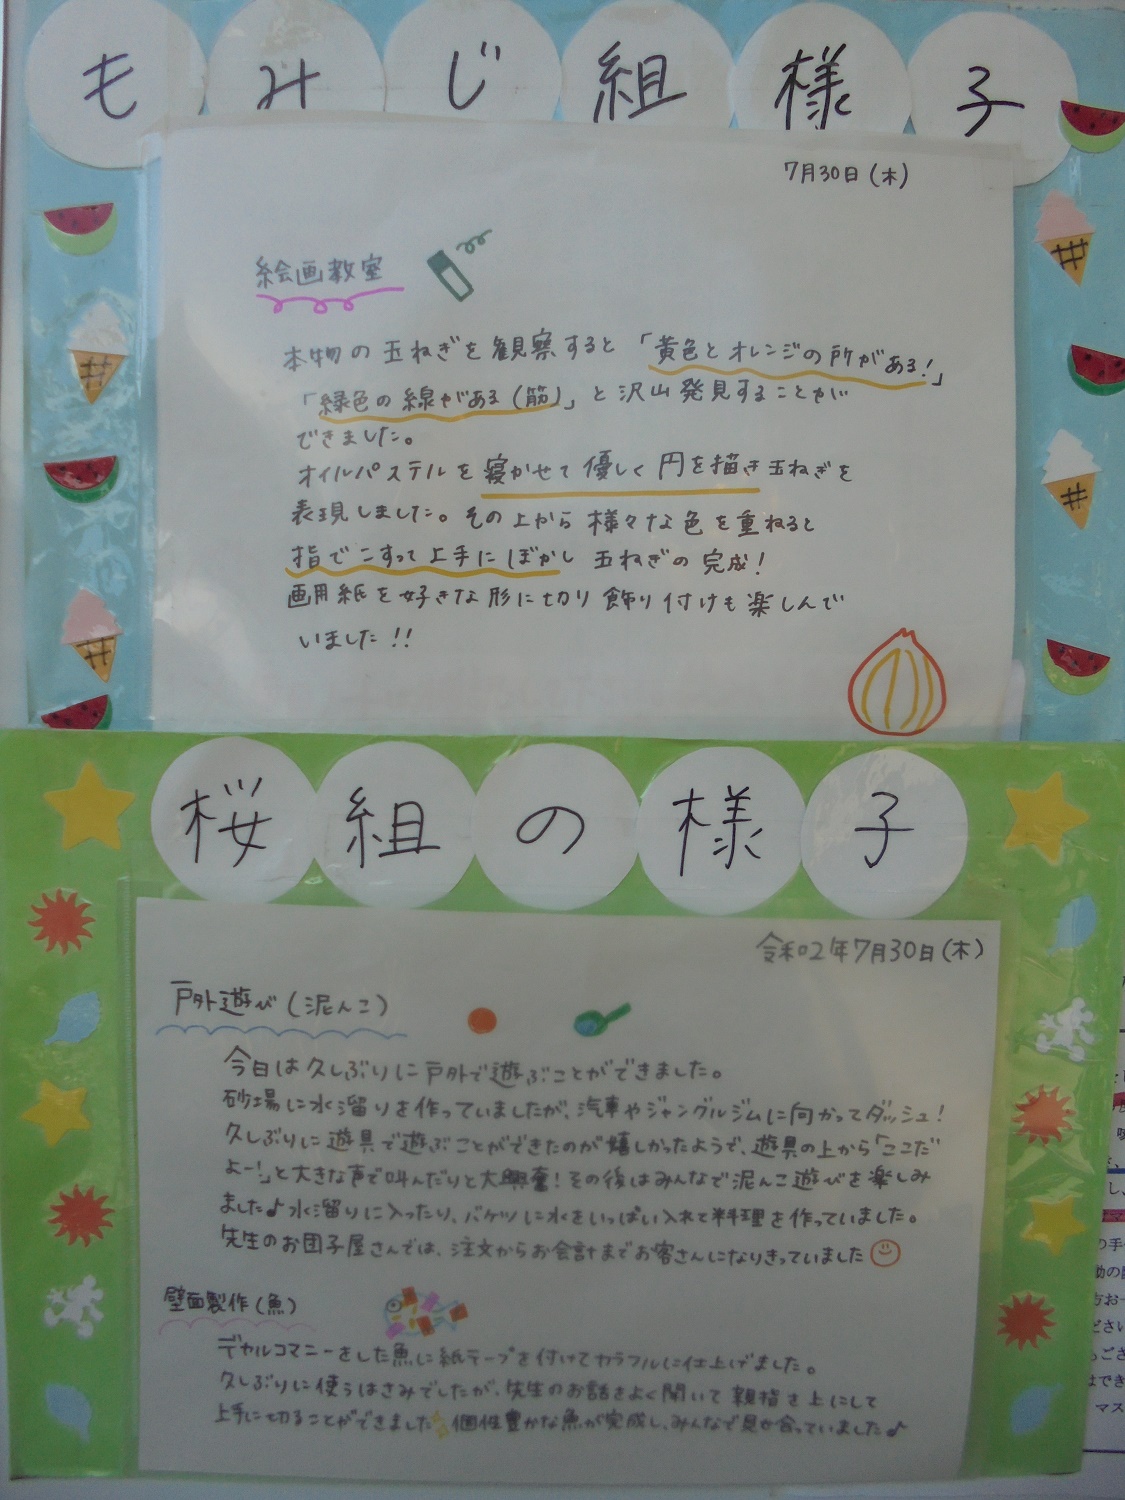 もみじ組様子
7月30日(木)
絵画教室
本物の玉ねぎを観察すると「黄色とオレンジの所がある!」
「緑色の線がある(筋)」と沢山発見することが
できました。
オイルパステルを寝かせて優しく円を描き玉ねぎを
表現しました。その上から様々な色を重ねると
指でこすって上手にぼかし玉ねぎの完成!
画用紙を好きな形に切り飾り付けも楽しんで
いました!!
桜組の様子
令和2年7月30日(木)
戸外遊び(泥んこ)
今日は久しぶりに戸外で遊ぶことができました。
砂場に水溜りを作っていましたが、汽車やジャングルジムに向かってダッシュ!
久しぶりに遊具で遊ぶことができたのが嬉しかったようで、遊具の上から「ここだ
よー!」と大きな声で叫んだりと大興奮!その後はみんなで泥んこ遊びを楽しみ
ました♪水溜りに入ったり、バケツに水をいっぱい入れて料理を作っていました。
先生のお団子屋さんでは、注文からお会計までお客さんになりきっていました
壁面製作(魚)
デカルコマニーをした魚に紙テープを付けてカラフルに仕上げました。
久しぶりに使うはさみでしたが、先生のお話をよく聞いて親指を上にして
上手に切ることができました 個性豊かな魚が完成し、みんなで見せ合っていました♪
の手
動の
方お
ださい
ござ
はでき
マス